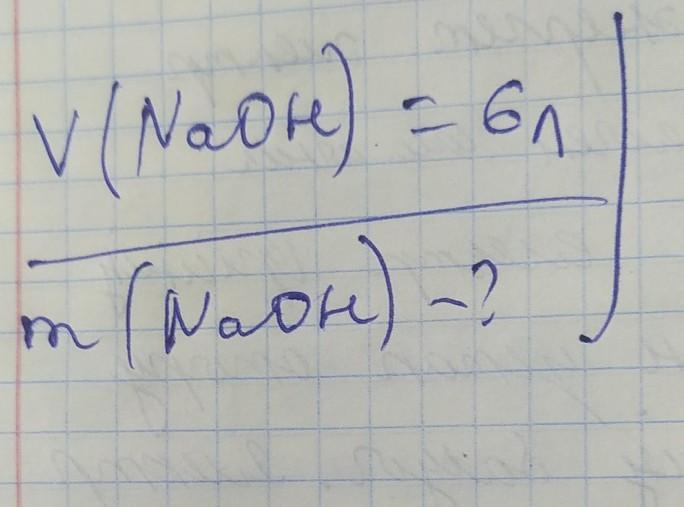 V(NaOH) = 6л
m(NaOH) -?